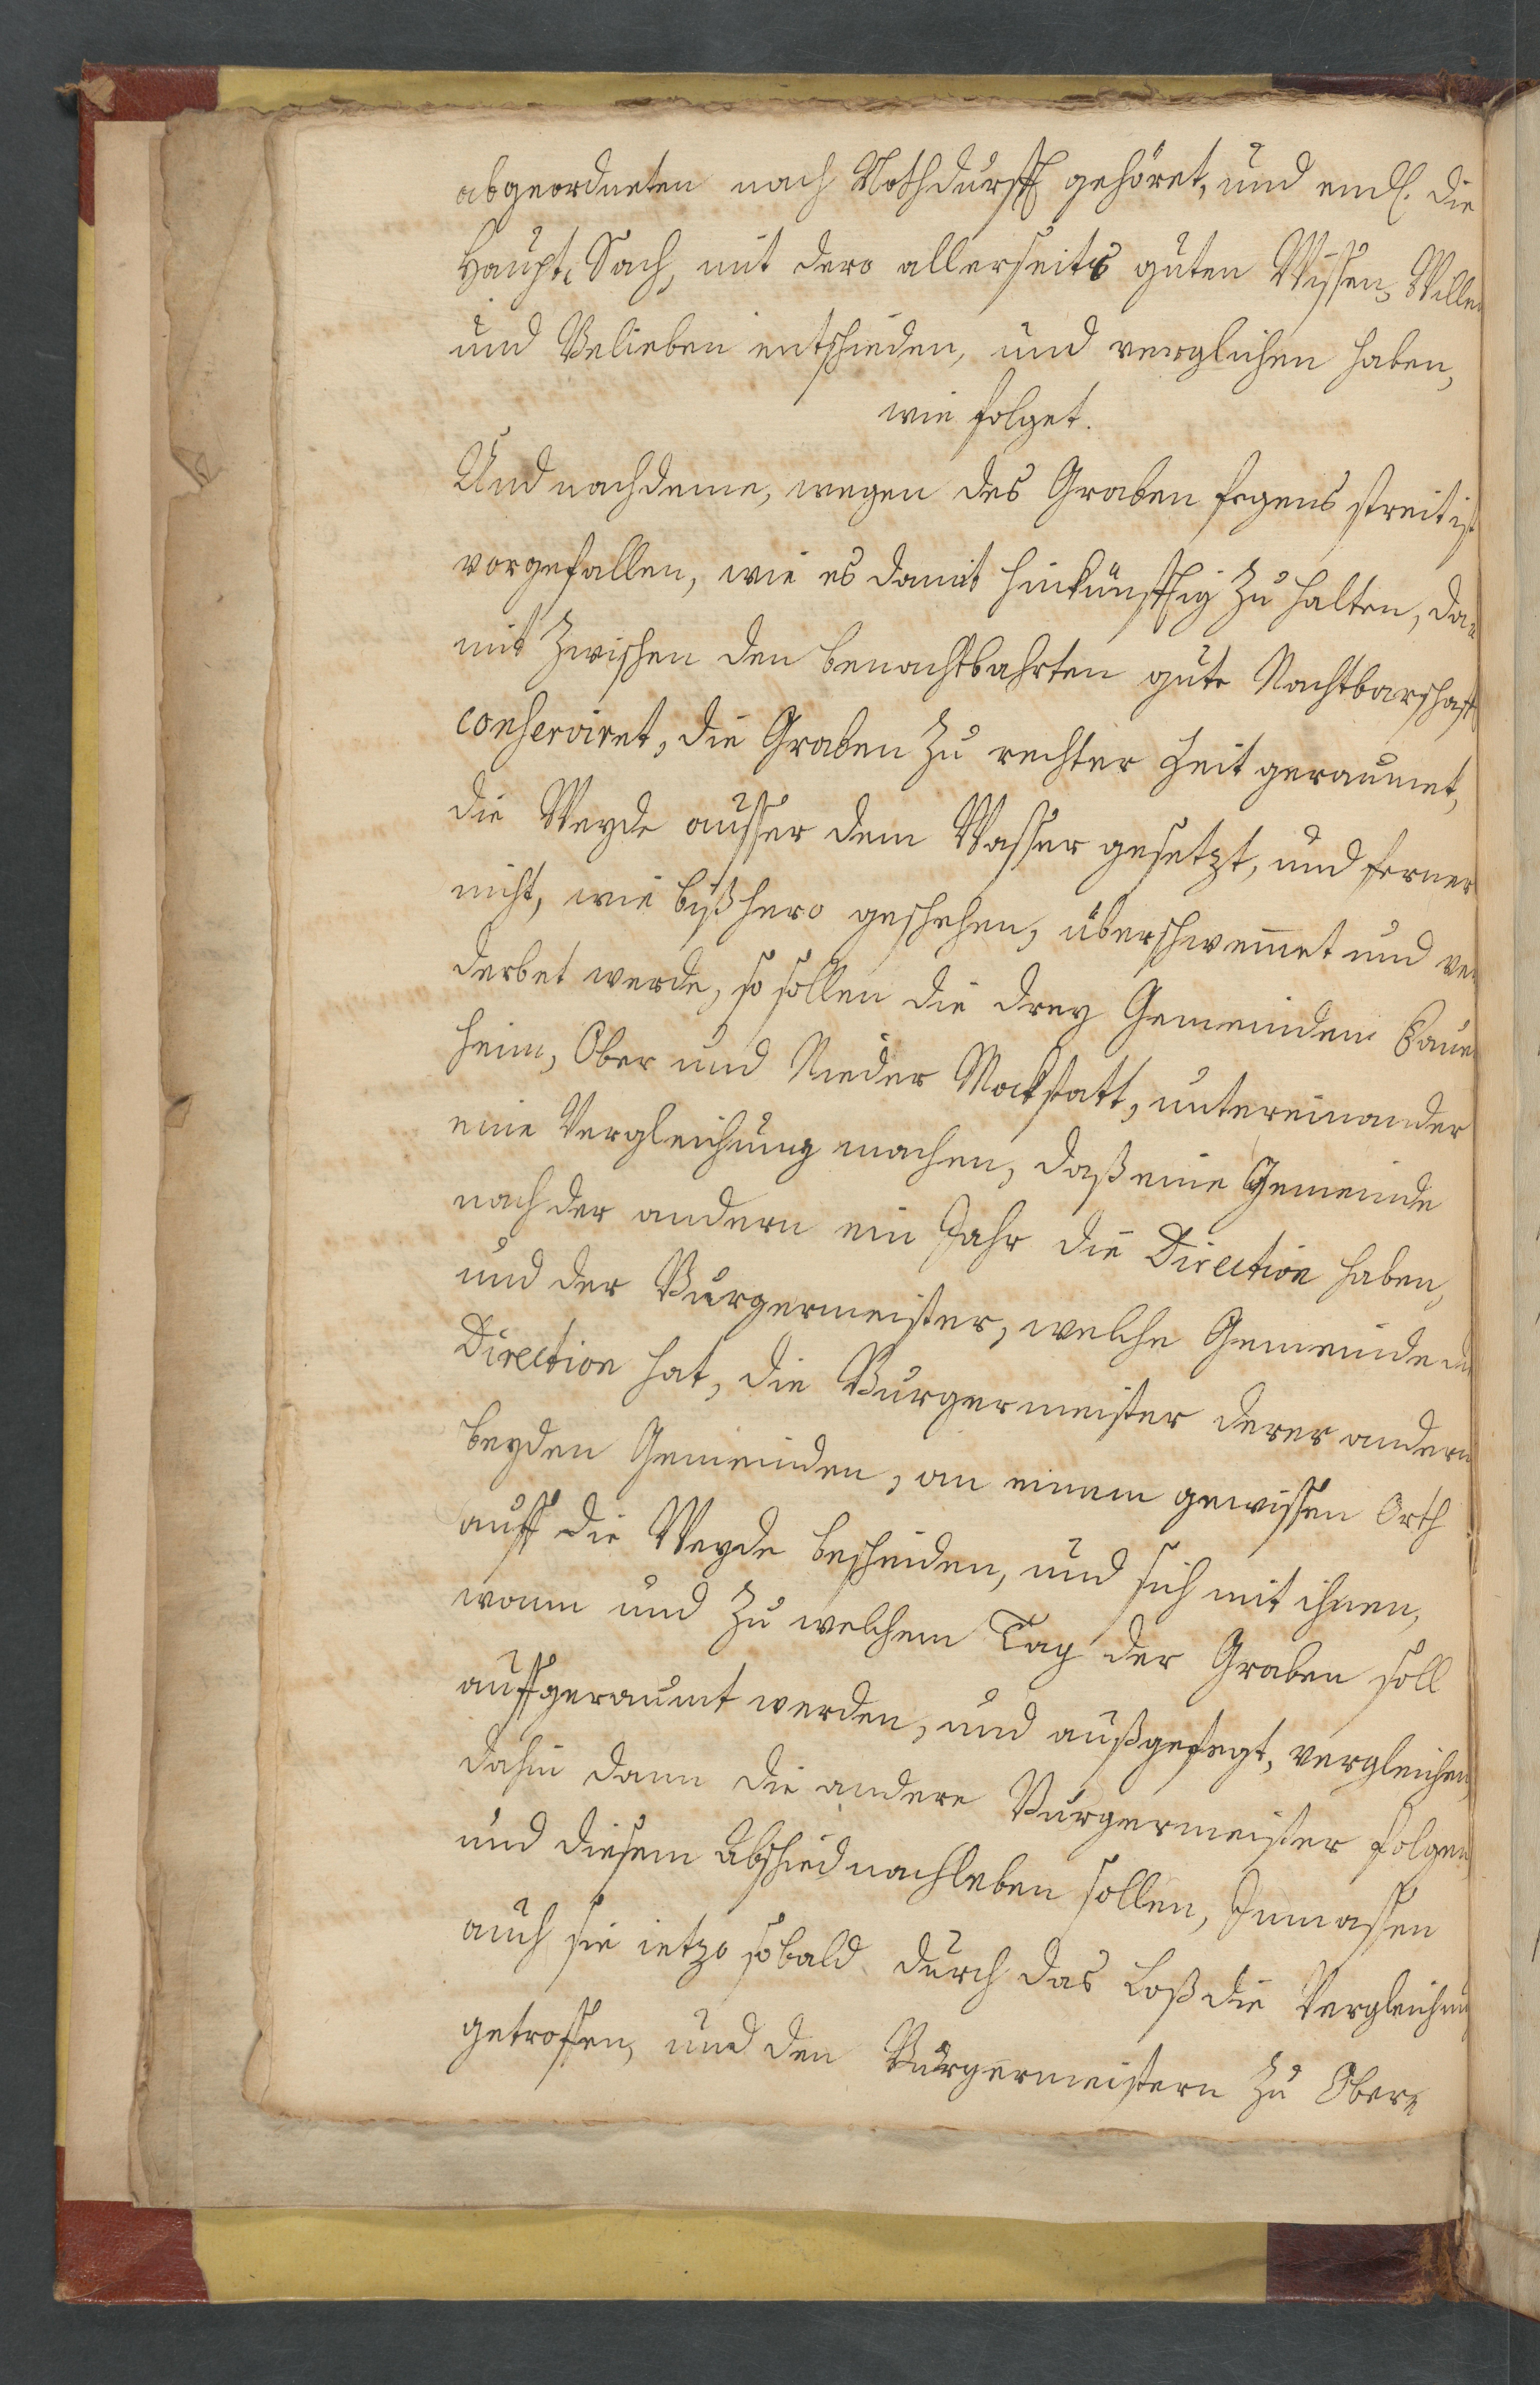 abgeordneten nach Nothdurfft gehöret, und endl. die
Haupt-Sach, mit dero allerseits guten Wissen, Willen
und Belieben entschieden, und verglichen haben,
wie folget.
Und nachdeme, wegen des Graben fegens streit ist
vorgefallen, wie es damit hinkünfftig zu halten, da-
mit zwischen den benachtbahrten gute Nachtbarschafft
conserviret, die Graben zu rechter Zeit geraumet,
die Weyde ausser dem Wasser gesetzt, und ferner
nicht, wie bißhero geschehen, überschwem̄et und ver
derbet werde, so sollen die drey Gemeinden Bauer
heim, Ober und Nieder Mockstatt, untereinander
eine Vergleichung machen, daß eine Gemeinde
nach der andern ein Jahr die Direction haben,
und der Burgermeister, welche Gemeinde die
Direction hat, die Burgermeister derer andern
beyden Gemeinden, an einem gewissen Orth
auff die Weyde bescheiden, und sich mit ihnen,
wann und zu welchem Tag der Graben soll
auffgeraumt werden, und außgefegt, vergleichen,
dahin dann die andere Burgermeister folgen
und diesem Abschied nachleben sollen, Inmassen
auch sie ietzo sobald durch das Loß die Vergleichung
getroffen, und den Burgermeistern zu Ober-